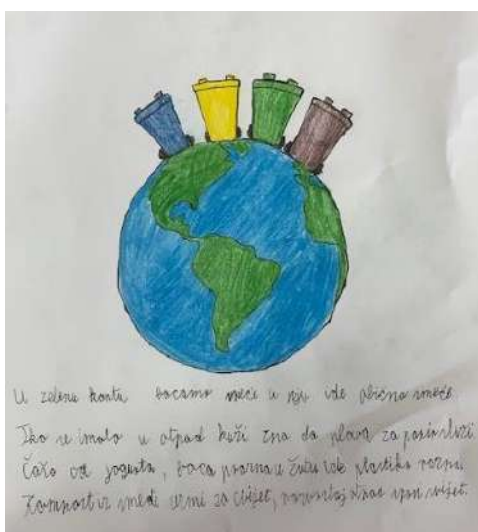 U zelenu kantu bacamo smeće u nju ide obično smeće.
Tko se imalo u otpad kuži zna da plava za papir služi
Čaša od jogurta, boca prazna u žutu ide plastika razna.
Kompost iz smeđe zemi za cvijet, razvrstaj otpad spasi svijet.